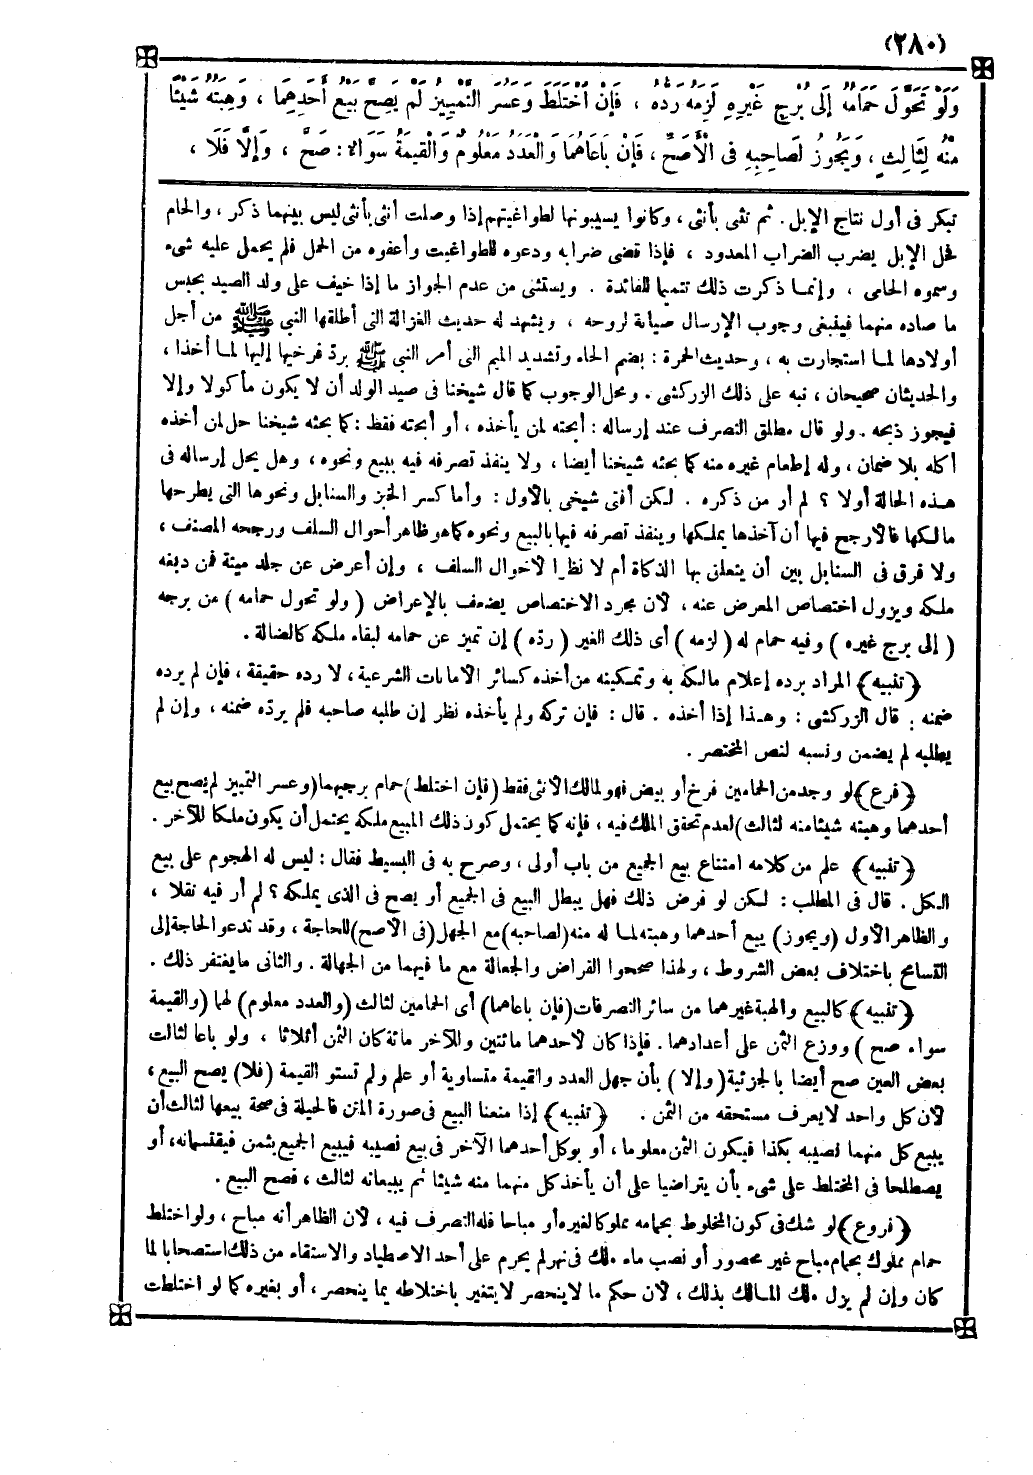 (٢٨٠)
وَلَوْ تَحَوَّلَ حَمَامُهُ إِلَى بُرْجِ غَيْرِهِ لَزِمَهُ رَدُّهُ ، فَإِنْ اخْتَلَطَ وَعَسُرَ التَّمْيِيزُ لَمْ يَصِحَّ بَيْعُ أَحَدِهِمَا ، وَهِبَتُهُ شَيْئًا
مِنْهُ لِثَالِثٍ ، وَيَجُوزُ لِصَاحِبِهِ فِى الْأَصَحِّ ، فَإِنْ بَاعَاهُمَا وَالْعَدَدُ مَعْلُومٌ وَالْقِيمَةُ سَوَاءٌ : صَحَّ ، وَإِلَّا فَلَا ،
تبكر فى أول نتاج الإبل . ثم تثى بأنثى ، وكانوا يسيبونها لطواغيتهم إذا وصلت أنثى بأنثى ليس بينهما ذكر ، والحام
فحل الإبل يضرب الضراب المعدود ، فإذا قضى ضرابه ودعوه للطواغيت وأعفوه من الحمل فلم يحمل عليه شىء
وسموه الحامى ، وإنمـا ذكرت ذلك تتميما للفائدة . ويستثنى من عدم الجواز ما إذا خيف على ولد الصيد بحبس
ما صاده منهما فينبغى وجوب الإرسال صيانة لروحه ، ويشهد له حديث الغزالة التى أطلقها النبى ﷺ من أجل
أولادها لمـا استجارت به ، وحديث الحمرة : بضم الحاء وتشديد الميم التى أمر النبى ﷺ بردّ فرخيها إليها لمـا أخذا ،
والحديثان صحيحان ، نبه على ذلك الزركشى . ومحل الوجوب كما قال شيخنا فى صيد الولد أن لا يكون مأكولا وإلا
فيجوز ذبحه . ولو قال مطلق التصرف عند إرساله : أبحته لمن يأخذه ، أو أبحته فقط : كما بحثه شيخنا حل لمن أخذه
أكله بلا ضمان ، وله إطعام غيره منه كما بحثه شيخنا أيضا ، ولا ينفذ تصرفه فيه ببيع ونحوه ، وهل يحل إرساله فى
هـذه الحالة أولا ؟ لم أر من ذكره . لـكن أفتى شيخى بالأول : وأما كسر الخبز والسنابل ونحوها التى يطرحها
مالـكها فالأرجح فيها أن آخذها يملـكها وينفذ تصرفه فيها بالبيع ونحوه كما هو ظاهر أحوال السلف ورجحه المصنف ،
ولا فرق فى السنابل بين أن يتعلق بها الذكاة أم لا نظرا لأحوال السلف ، وإن أعرض عن جلد ميتة فمن دبغه
ملكه ويزول اختصاص المعرض عنه ، لأن مجرد الاختصاص يضعف بالإعراض ( ولو تحول حمامه ) من برجه
( إلى برج غيره ) وفيه حمام له ( لزمه ) أى ذلك الغير ( ردّه ) إن تميز عن حمامه لبقاء ملكه كالضالة .
﴿ تنبيه ﴾ المراد برده إعلام مالكه به وتمـكينه من أخذه كسائر الأمانات الشرعية ، لا رده حقيقة ، فإن لم يرده
ضمنه . قال الزركشى : وهـذا إذا أخذه . قال : فإن تركه ولم يأخذه نظر إن طلبه صاحبه فلم يردّه ضمنه ، وإن لم
يطلبه لم يضمن ونسبه لنص المختصر .
﴿ فرع ﴾ لو وجد من الحمامين فرخ أو بيض فهو لمالك الأنثى فقط ( فإن اختلط ) حمام برجيهما ( وعسر التمييز لم يصح بيع
أحدهما وهبته شيئا منه لثالث ) لعدم تحقق الملك فيه ، فإنه كما يحتمل كون ذلك المبيع ملكه يحتمل أن يكون ملكا للآخر .
﴿ تنبيه ﴾ علم من كلامه امتناع بيع الجميع من باب أولى ، وصرح به فى البسيط فقال : ليس له الهجوم على بيع
الـكل . قال فى المطلب : لـكن لو فرض ذلك فهل يبطل البيع فى الجميع أو يصح فى الذى يملـكه ؟ لم أر فيه نقلا ،
والظاهر الأول ( ويجوز ) بيع أحدهما وهبته لمـا له منه ( لصاحبه ) مع الجهل ( فى الأصح ) للحاجة ، وقد تدعو الحاجة إلى
التسامح باختلاف بعض الشروط ، ولهذا صححوا القراض والجعالة مع ما فيهما من الجهالة . والثانى ما يغتفر ذلك .
﴿ تنبيه ﴾ كالبيع والهبة غيرهما من سائر التصرفات ( فإن باعاهما ) أى الحمامين لثالث ( والعدد معلوم ) لهما ( والقيمة
سواء صح ) ووزع الثمن على أعدادهما . فإذا كان لأحدهما مائتين وللآخر مائة كان الثمن أثلاثا ، ولو باعا لثالث
بعض العين صح أيضا بالجزئية ( وإلا ) بأن جهل العدد والقيمة متساوية أو علم ولم تستو القيمة ( فلا ) يصح البيع ،
لأن كل واحد لا يعرف مستحقه من الثمن . ﴿ تنبيه ﴾ إذا منعنا البيع فى صورة المتن فالحيلة فى صحة بيعها لثالث أن
يبيع كل منهما نصيبه بكذا فيكون الثمن معلوما ، أو يوكل أحدهما الآخر فى بيع نصيبه فيبيع الجميع بثمن فيقتسمانه ، أو
يصطلحا فى المختلط على شىء بأن يتراضيا على أن يأخذ كل منهما منه شيئا ثم يبيعانه لثالث ، فصح البيع .
﴿ فروع ﴾ لو شك فى كون المخلوط بحمامه مملوكا لغيره أو مباحا فله التصرف فيه ، لأن الظاهر أنه مباح ، ولو اختلط
حمام مملوك بحمام مباح غير محصور أو نصب ماء ملك فى نهر لم يحرم على أحد الاصطياد والاستقاء من ذلك استصحابا لما
كان وإن لم يزل ملك المـالك بذلك ، لأن حكم ما لا ينحصر لا يتغير باختلاطه بما ينحصر ، أو بغيره كما لو اختلطت